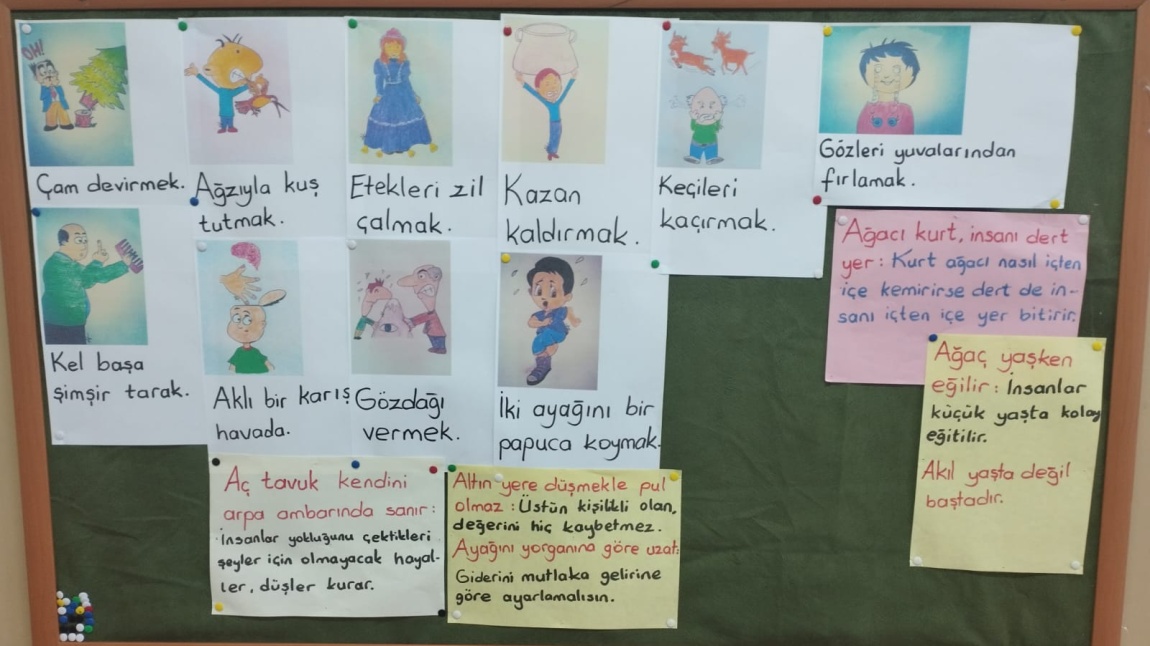 OH!
Çam devirmek.
Ağzıyla kuş
tutmak.
Etekleri zil
çalmak.
Kazan
kaldırmak.
Keçileri
kaçırmak.
Gözleri yuvalarından
fırlamak.
Kel başa
şimşir tarak.
Aklı bir karış
havada.
Gözdağı
vermek.
İki ayağını bir
papuca koymak.
Ağacı kurt, insanı dert
yer: Kurt ağacı nasıl içten
içe kemirirse dert de in-
sanı içten içe yer bitirir.
Ağaç yaşken
eğilir: İnsanlar
küçük yaşta kolay
eğitilir.
Akıl yaşta değil
baştadır.
Aç tavuk kendini
arpa ambarında sanır:
İnsanlar yokluğunu çektikleri
şeyler için olmayacak hayal-
ler, düşler kurar.
Altın yere düşmekle pul
olmaz: Üstün kişilikli olan,
değerini hiç kaybetmez.
Ayağını yorganına göre uzat:
Giderini mutlaka gelirine
göre ayarlamalısın.